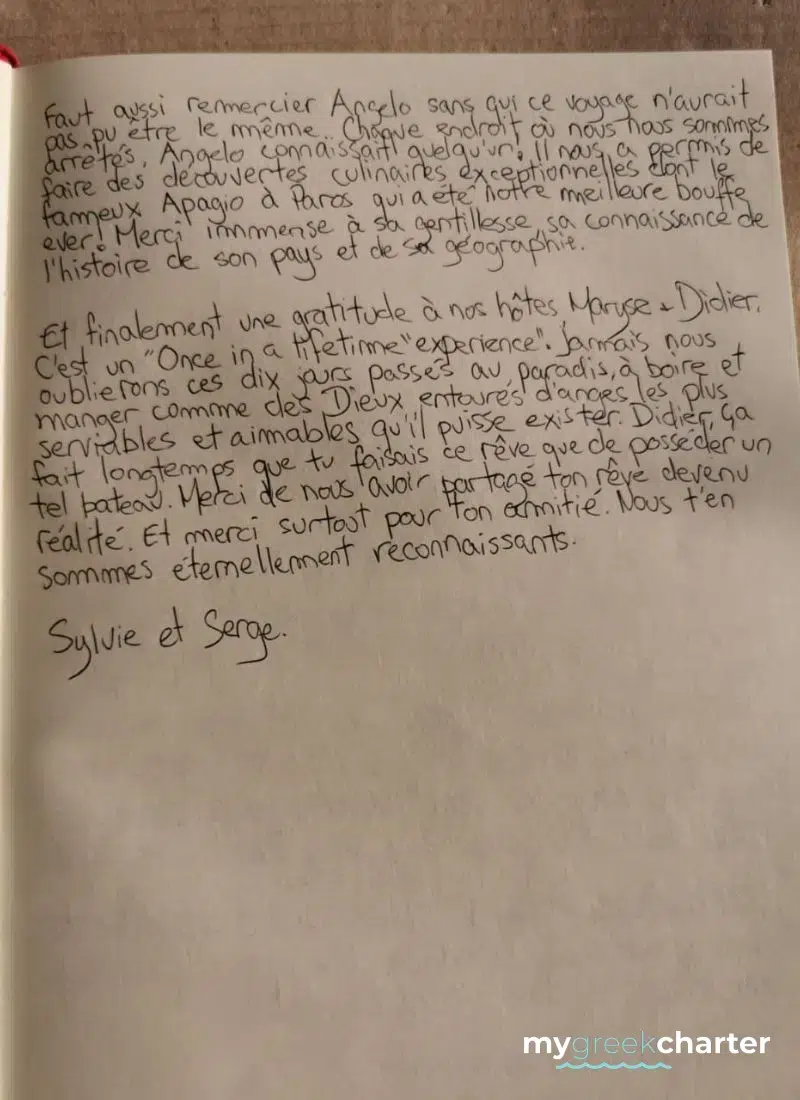 Faut aussi remercier Angelo sans qui ce voyage n'aurait
pas pu être le même. Chaque endroit où nous nous sommes
arrêtés, Angelo connaissait quelqu'un! Il nous a permis de
faire des découvertes culinaires exceptionnelles dont le
fameux Apagio à Paros qui a été notre meilleure bouffe
ever! Merci immense à sa gentillesse, sa connaissance de
l'histoire de son pays et de sa géographie.
Et finalement une gratitude à nos hôtes Maryse & Didier.
C'est un "Once in a lifetime "experience". Jamais nous
oublierons ces dix jours passés au paradis, à boire et
manger comme des Dieux entourés d'anges les plus
serviables et aimables qu'il puisse exister. Didier, ça
fait longtemps que tu faisais ce rêve que de posséder un
tel bateau. Merci de nous avoir partagé ton rêve devenu
réalité. Et merci surtout pour ton amitié. Nous t'en
sommes éternellement reconnaissants.
Sylvie et Serge.
mygreekcharter